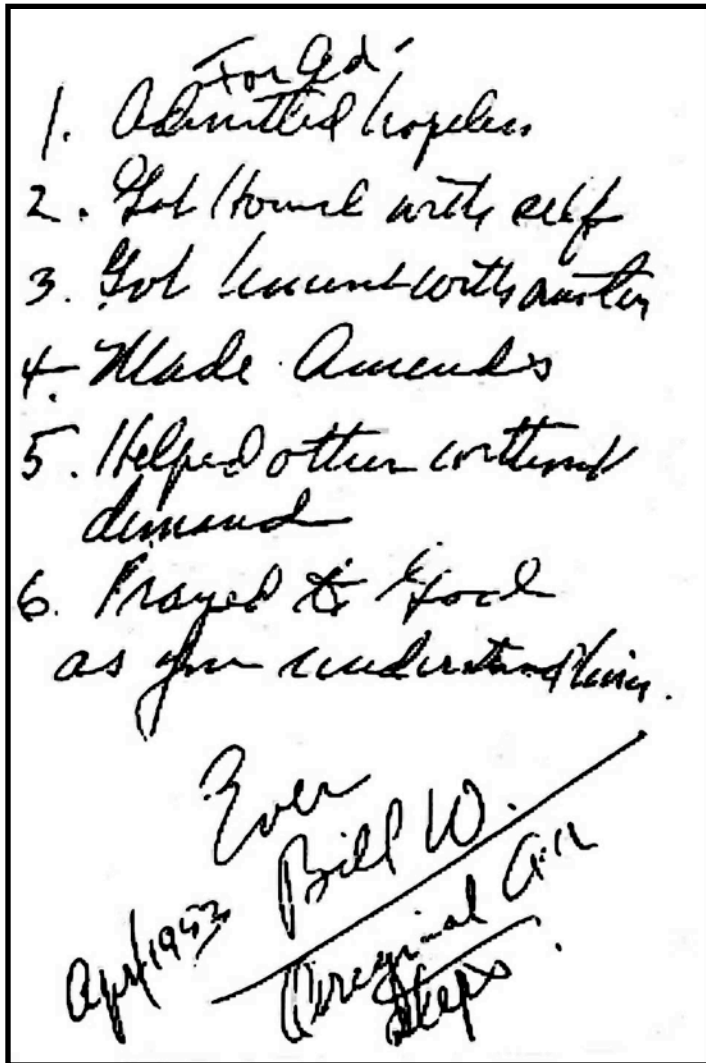 For Ed -
1. Admitted hopeless
2. Got honest with self
3. Got honest with another
4. Made amends
5. Helped other without
demand
6. Prayed to God
as you understand him.
Ever
Bill W.
Apr/1953
Original AA
Steps